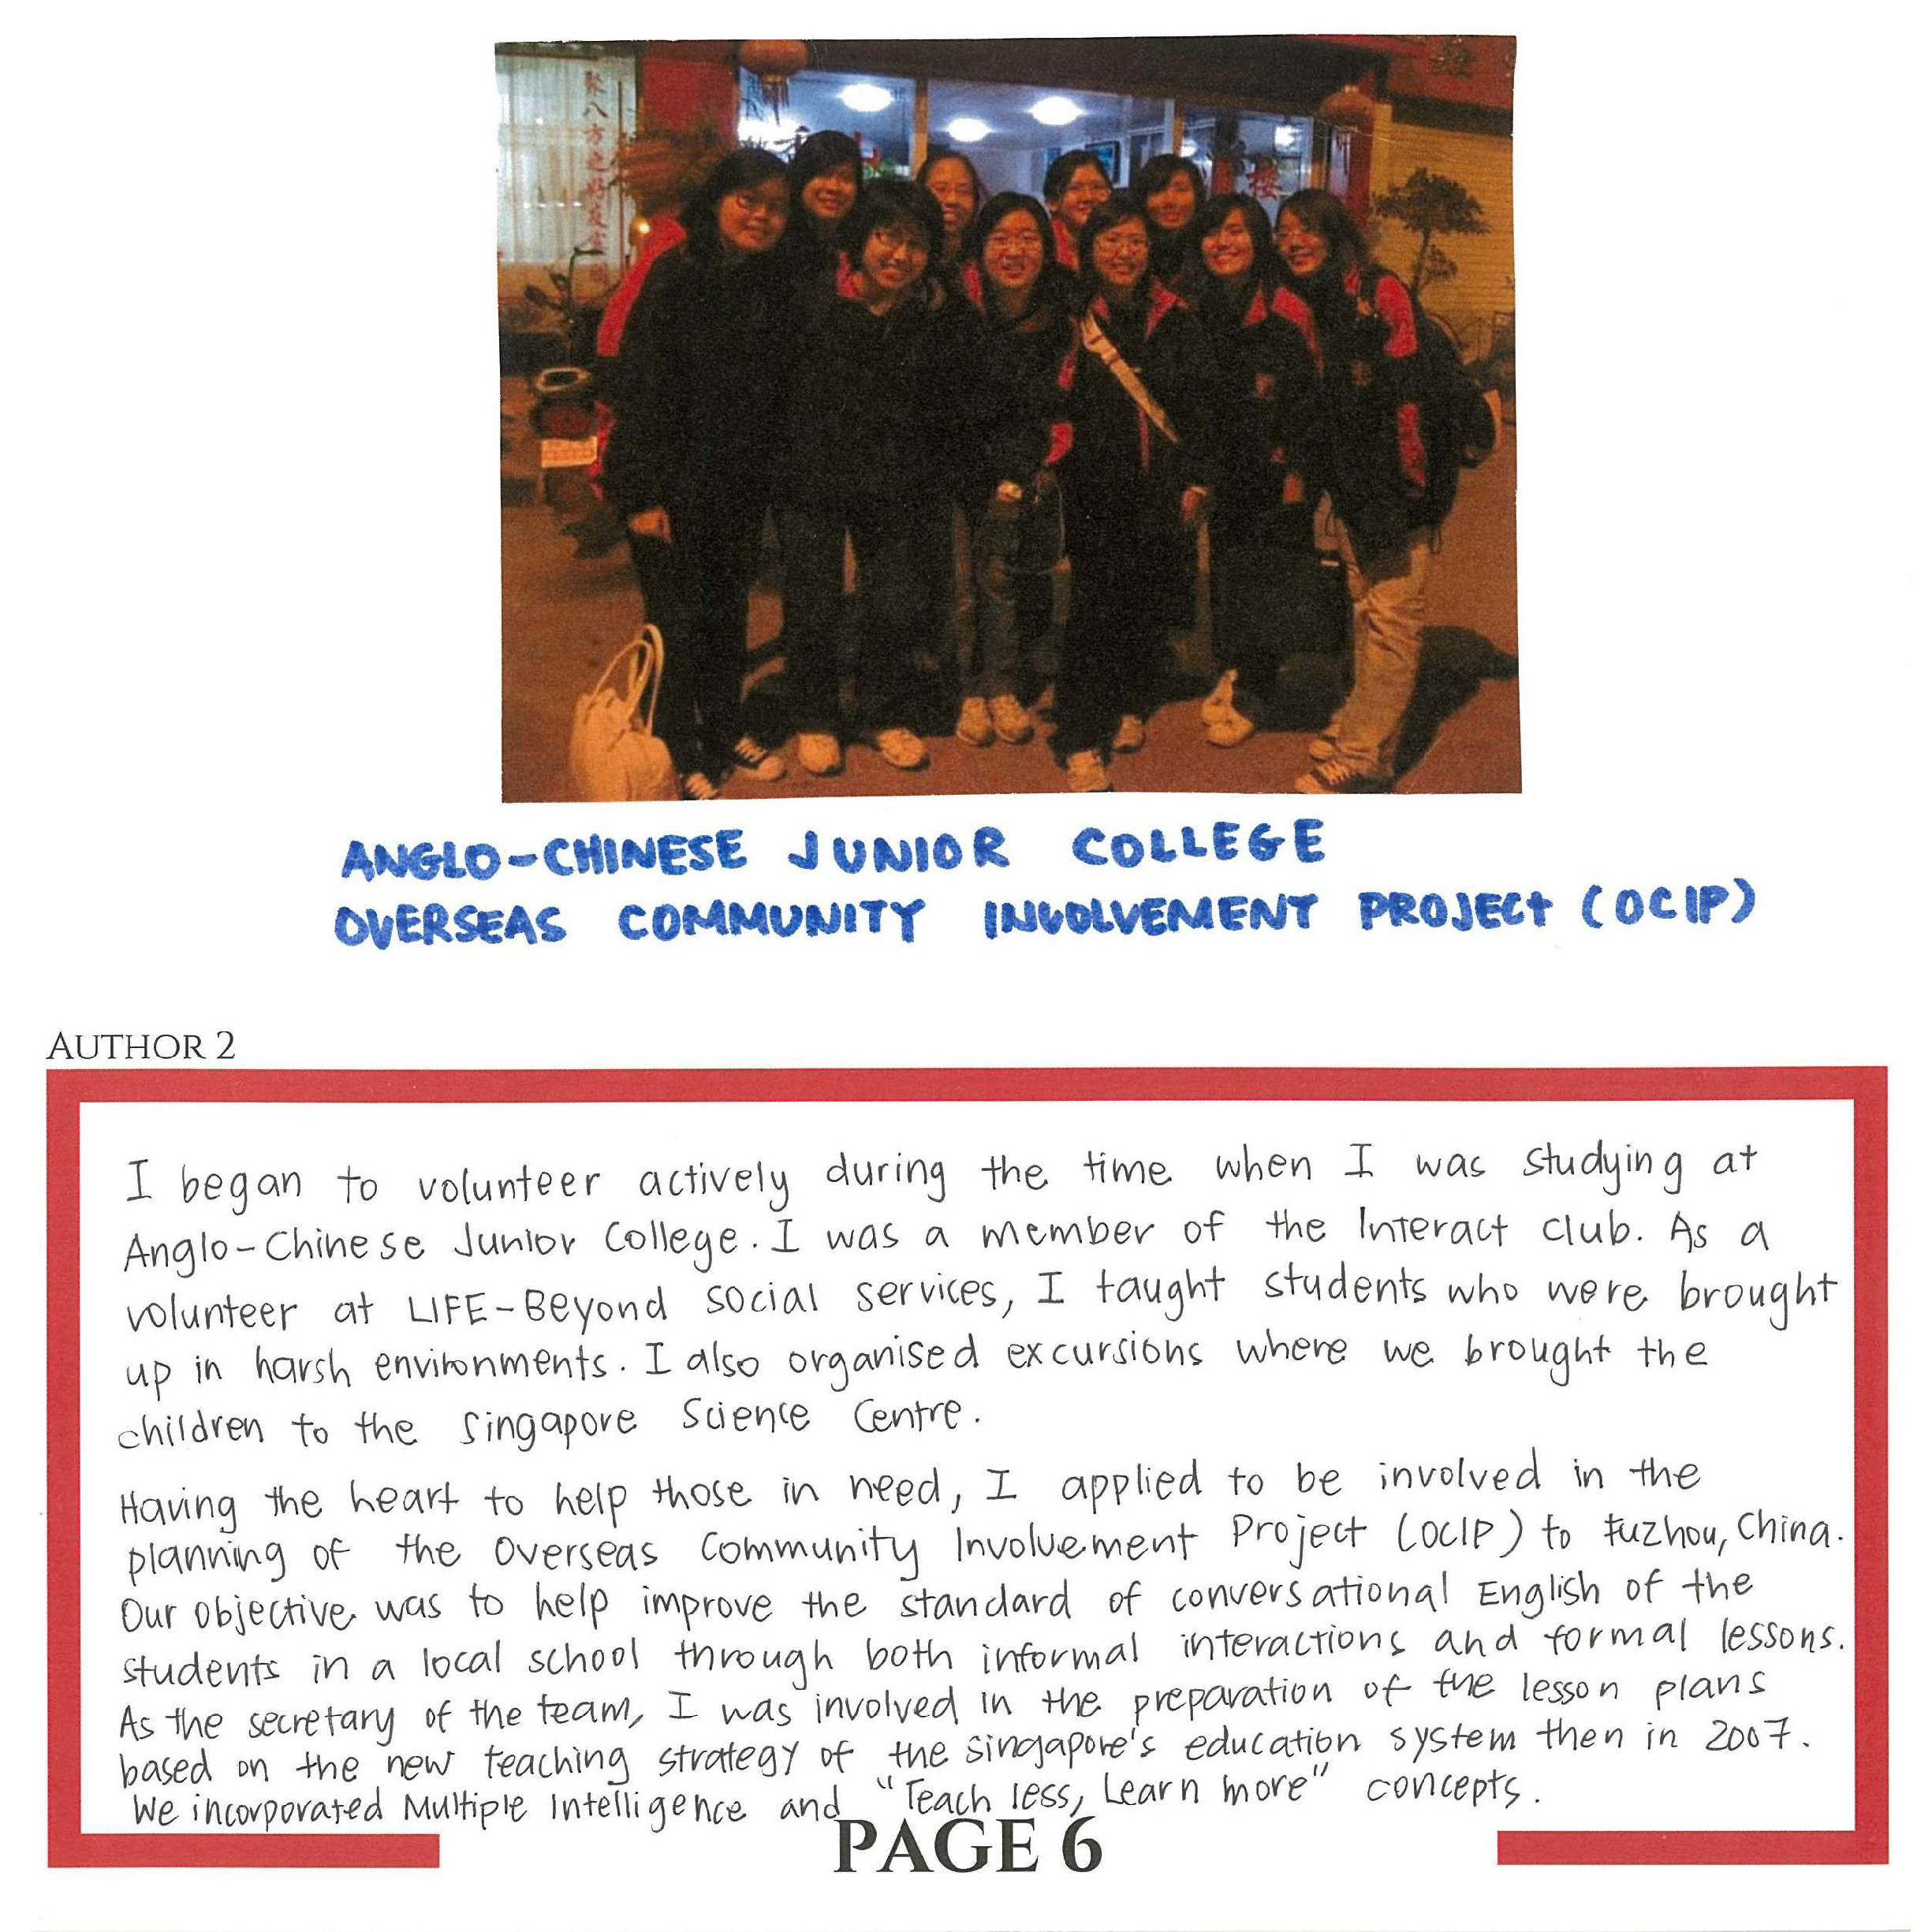 聚八方之好友
楼
ANGLO-CHINESE JUNIOR COLLEGE
OVERSEAS COMMUNITY INVOLVEMENT PROJECT (OCIP)
AUTHOR 2
I began to volunteer actively during the time when I was studying at
Anglo-Chinese Junior College. I was a member of the Interact club. As a
volunteer at LIFE-Beyond social services, I taught students who were brought
up in harsh environments. I also organised excursions where we brought the
children to the Singapore Science Centre.
Having the heart to help those in need, I applied to be involved in the
planning of the Overseas Community Involvement Project (OCIP) to Fuzhou, China.
Our objective was to help improve the standard of conversational English of the
students in a local school through both informal interactions and formal lessons.
As the secretary of the team, I was involved in the preparation of the lesson plans
based on the new teaching strategy of the Singapore's education system then in 2007.
We incorporated Multiple Intelligence and "Teach less, Learn more" concepts.
PAGE 6